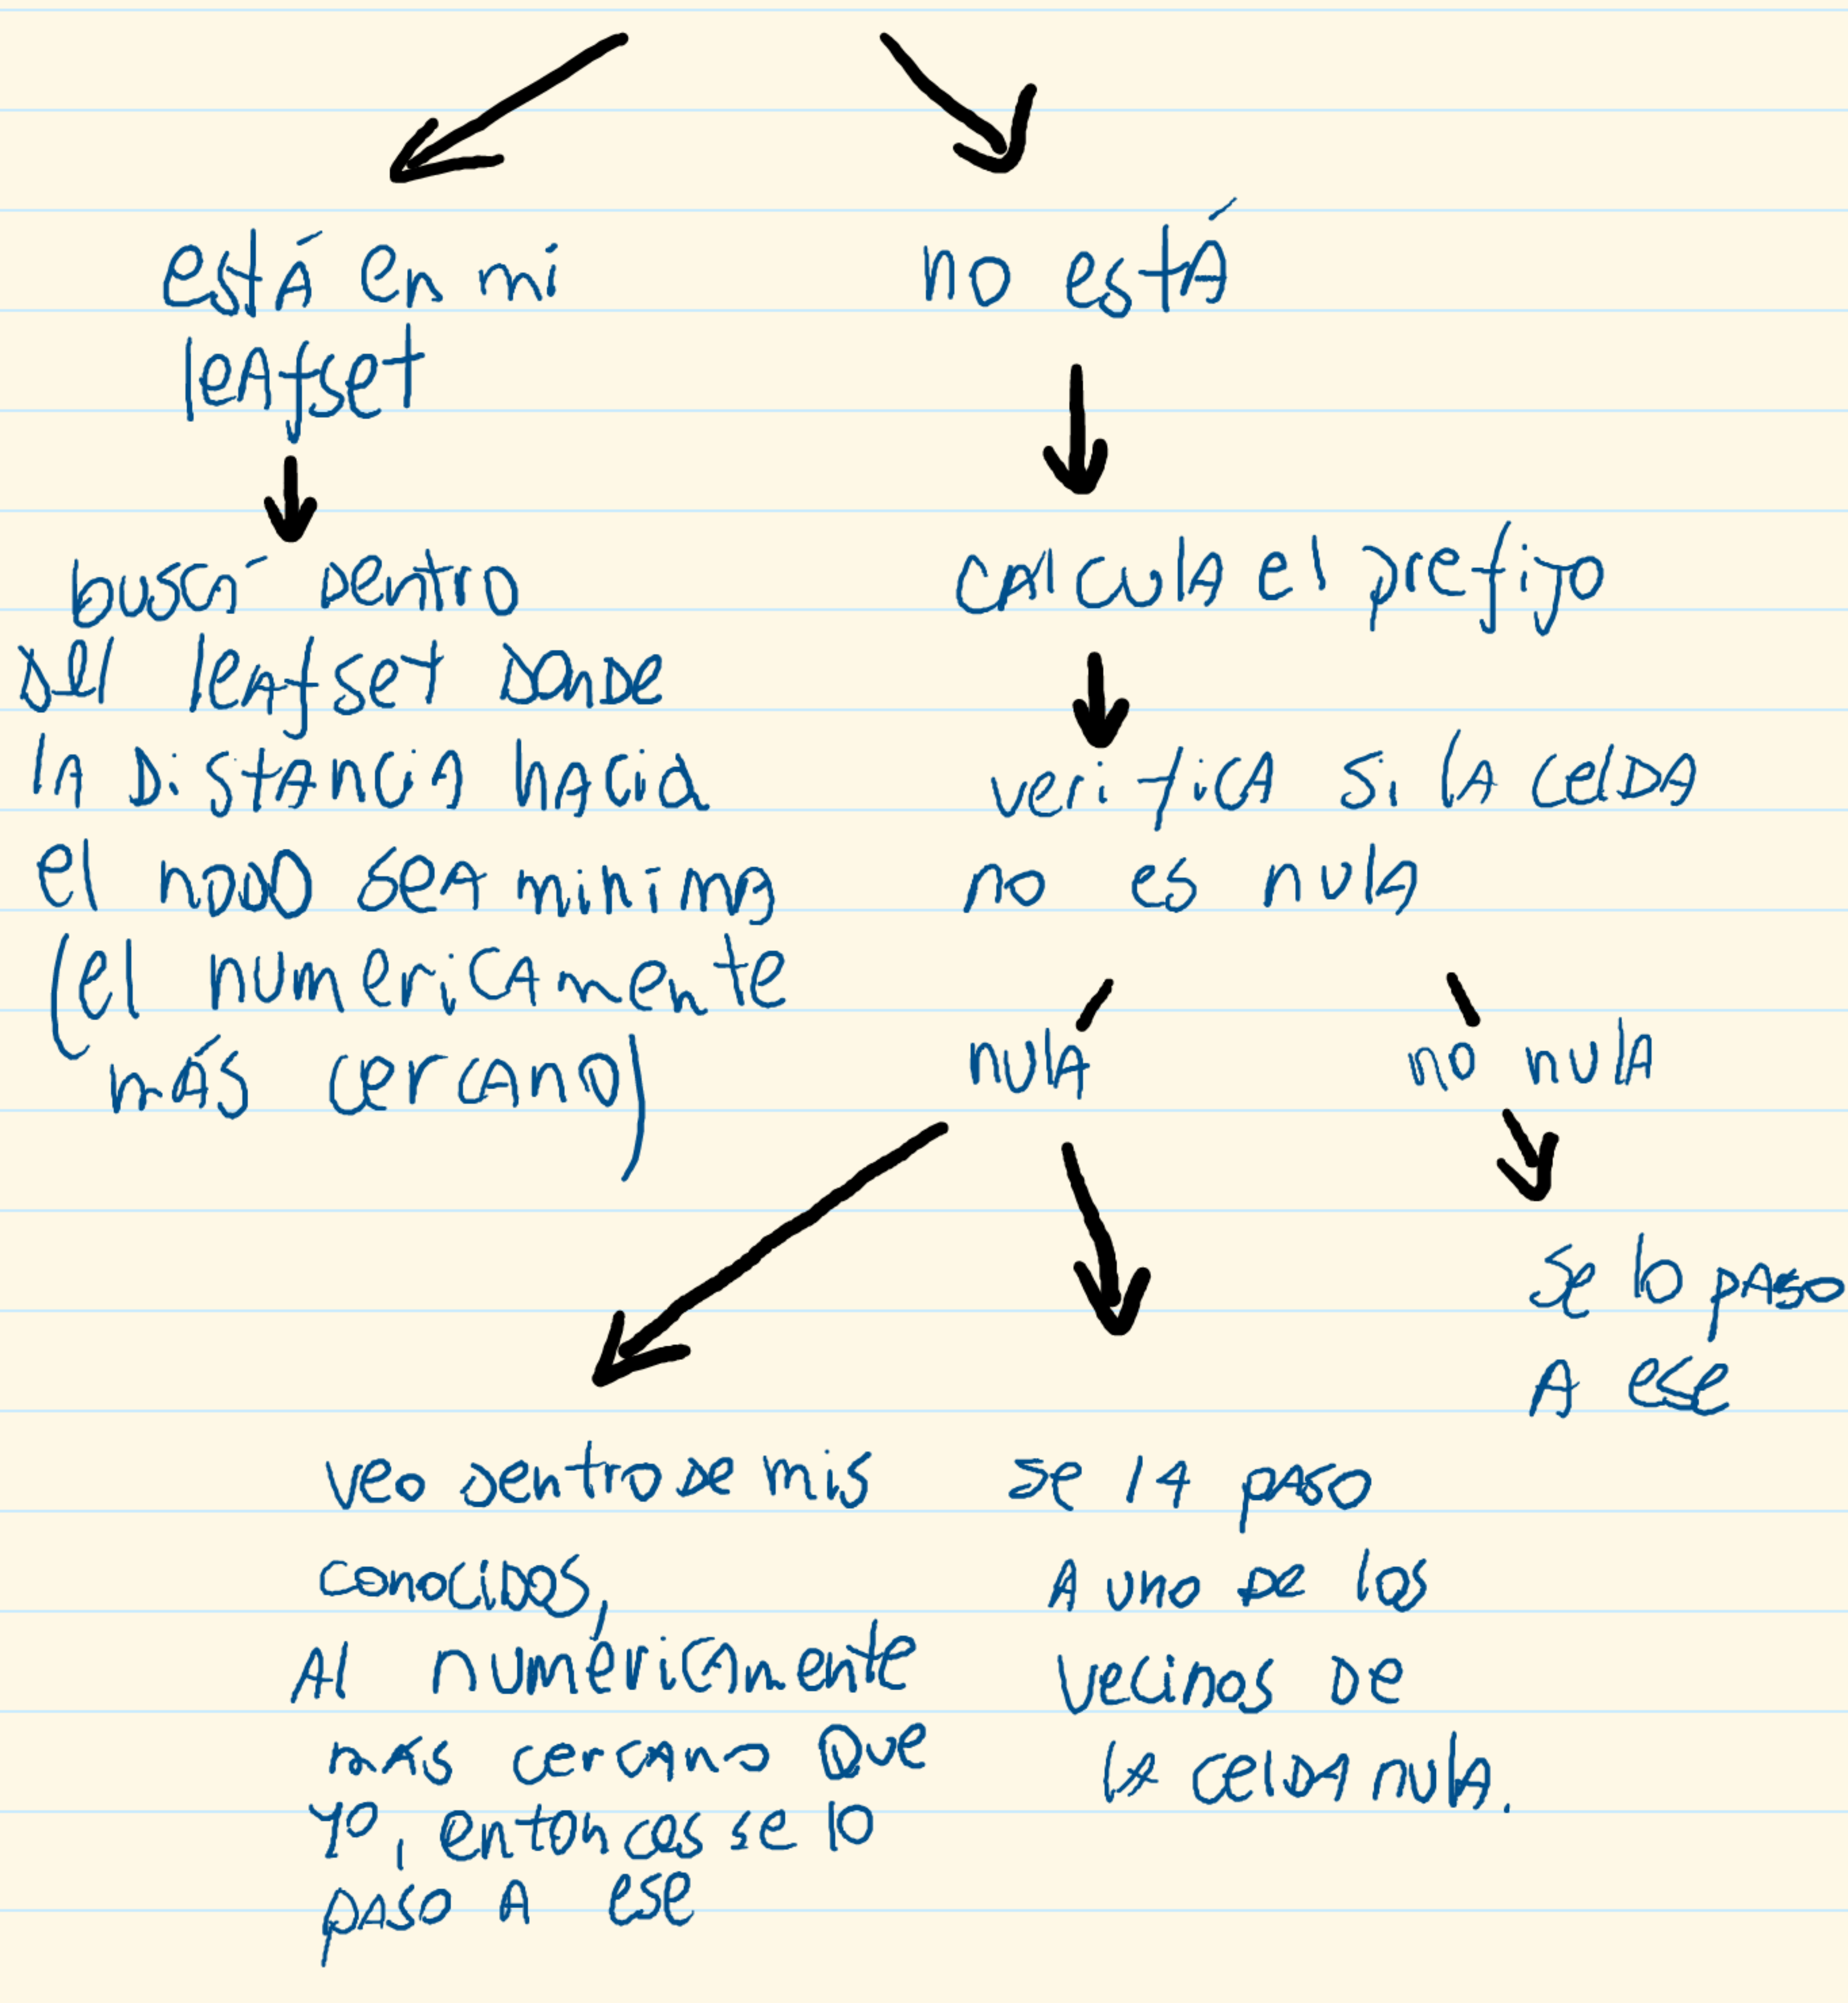 está en mi
leafset
no está
buscá dentro
del leafset donde
la distancia hacia
el nodo sea minima
(el numericamente
más cercano)
calcula el prefijo
verifica si la celda
no es nula
nula
no nula
se lo paso
a ese
veo dentro de mis
conocidos,
al numéricamente
mas cercano que
yo, entonces se lo
paso a ese
se la paso
a uno de los
vecinos de
la celda nula.